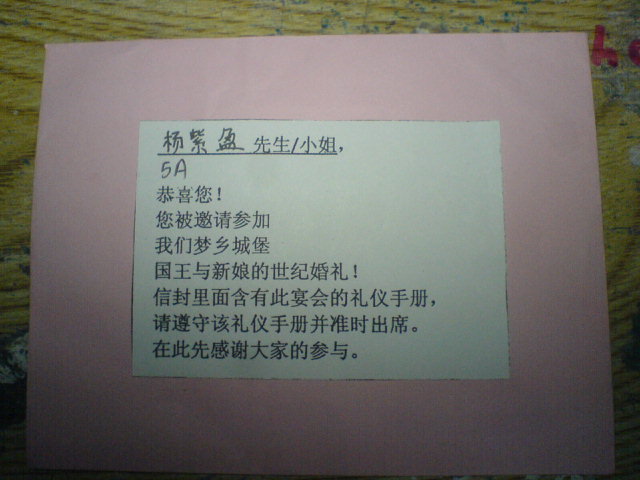 杨紫盈 先生/小姐,
5A
恭喜您!
您被邀请参加
我们梦乡城堡
国王与新娘的世纪婚礼!
信封里面含有此宴会的礼仪手册,
请遵守该礼仪手册并准时出席。
在此先感谢大家的参与。